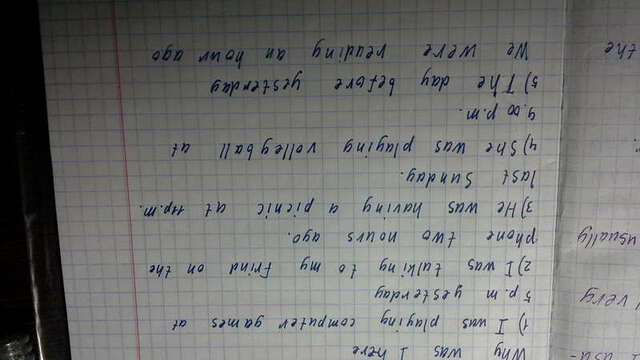 Why was I here
1) I was playing computer games at
5 p.m yesterday
2) I was talking to my frind on the
phone two hours ago.
3) He was having a picnic at 11p.m.
last Sunday.
4) She was playing volleyball at
9.00 p.m.
5) The day before yesterday
We were reading an hour ago
usually
very
the